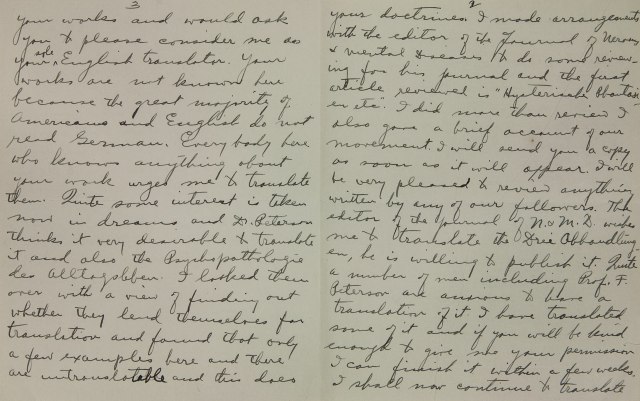 2
your doctrines. I made arrangements
with the editor of the Journal of Nervous
& Mental Diseases to do some review-
ing for his journal and the first
article reviewed is "Hysterische Phantasi
en etc". I did more than review I
also gave a brief account of our
movement. I will send you a copy
as soon as it will appear. I will
be very pleased to review anything
written by any of our followers. The
editor of the Journal of N. & M. D. wishes
me to translate the Drei Abhandlung
en, he is willing to publish it. Quite
a number of men including Prof. F.
Peterson are anxious to have a
translation of it. I have translated
some of it and if you will be kind
enough to give me your permission
I can finish it within a few weeks.
I shall now continue to translate
3
your works and would ask
you to please consider me as
your sole English translator. Your
works are not known here
because the great majority of
Americans and English do not
read German. Every body here
who knows anything about
your work urges me to translate
them. Quite some interest is taken
now in dreams and Dr. Peterson
thinks it very desirable to translate
it and also the Psychopathologie
des Alltagsleben. I looked them
over with a view of finding out
whether they lend themselves for
translation and found that only
a few examples here and there
are untranslatable and this does